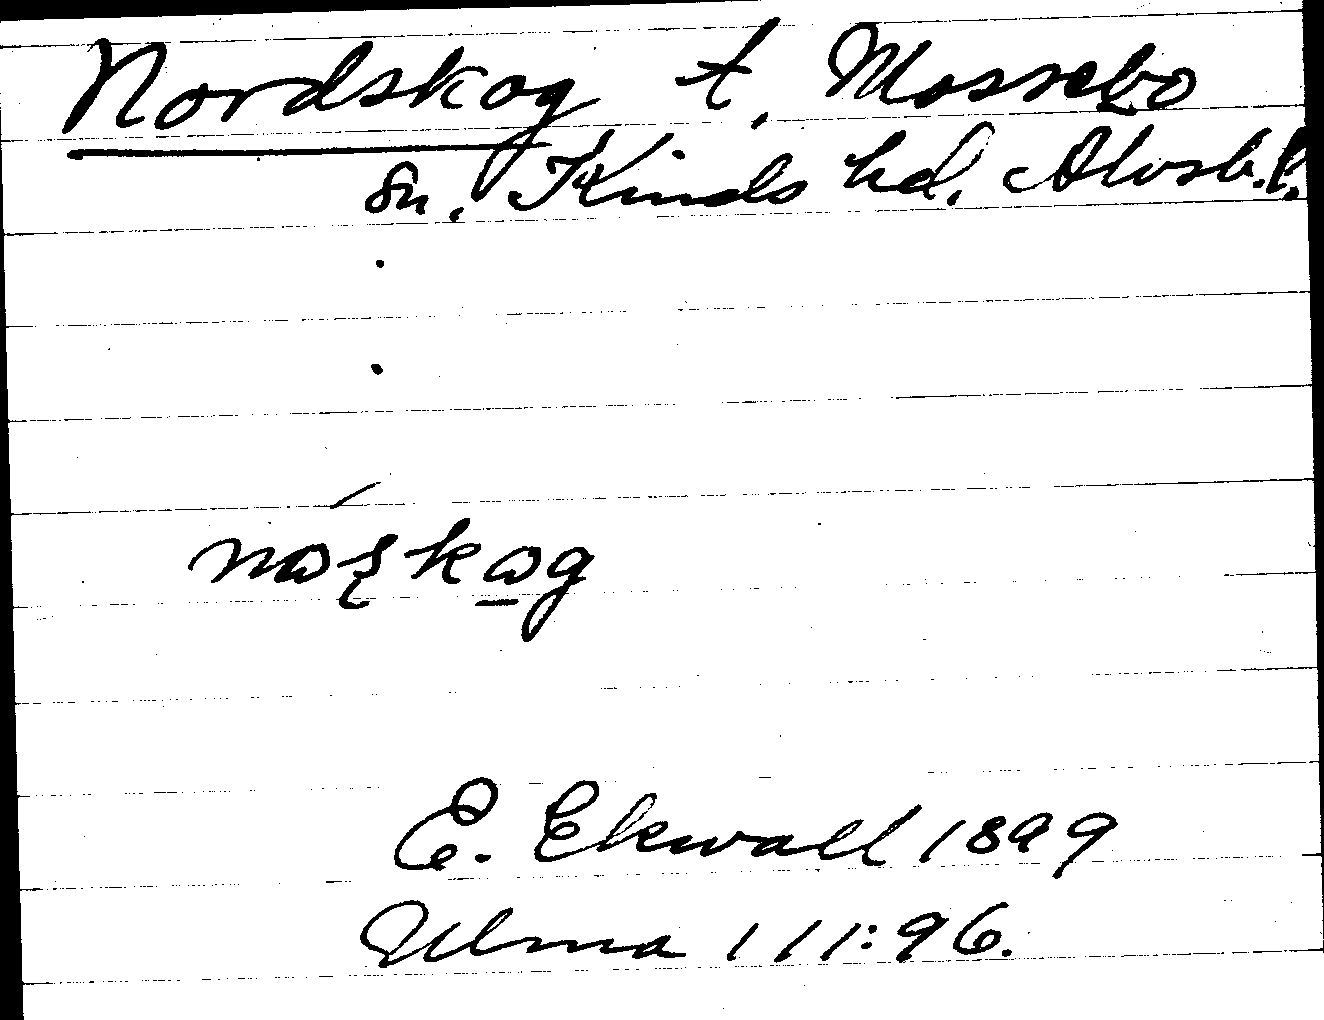 Nordskog t. Mossebo
sn. Kinds hd. Älvsb. l.
E. Ekwall 1899
Ulma 111:96.